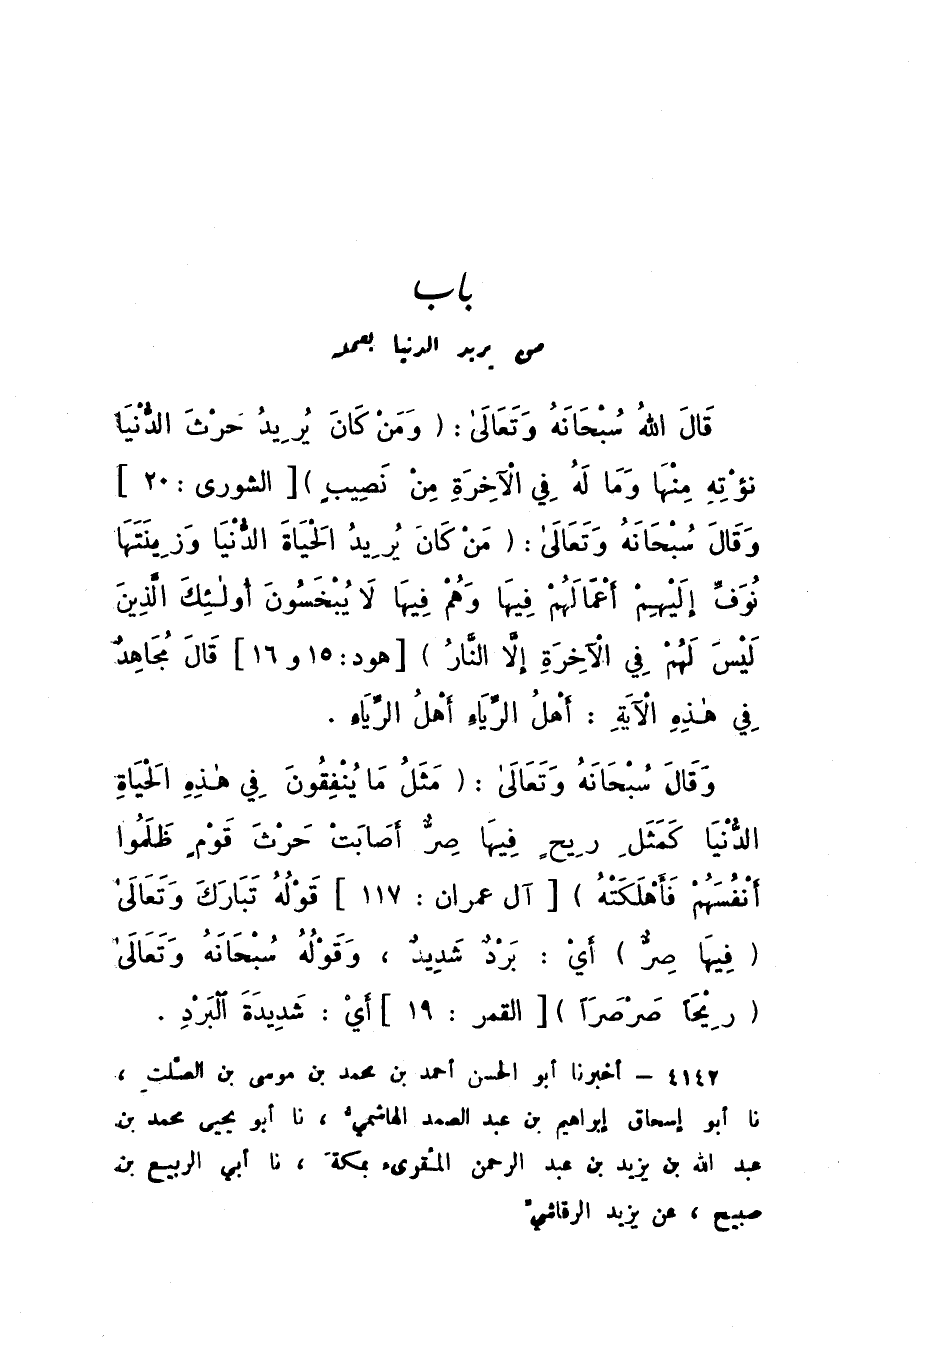 باب
من يريد الدنيا بعمله
قَالَ اللهُ سُبْحَانَهُ وَتَعَالَىٰ : ( وَمَنْ كَانَ يُرِيدُ حَرْثَ الدُّنْيَا
نؤْتِهِ مِنْهَا وَمَا لَهُ فِي الْآخِرَةِ مِنْ نَصِيبٍ ) [ الشورى : ٢٠ ]
وَقَالَ سُبْحَانَهُ وَتَعَالَىٰ : ( مَنْ كَانَ يُرِيدُ الْحَيَاةَ الدُّنْيَا وَزِينَتَهَا
نُوَفِّ إِلَيْهِمْ أَعْمَالَهُمْ فِيهَا وَهُمْ فِيهَا لَا يُبْخَسُونَ أُولٰئِكَ الَّذِينَ
لَيْسَ لَهُمْ فِي الْآخِرَةِ إِلَّا النَّارُ ) [ هود : ١٥ و ١٦ ] قَالَ مُجَاهِدٌ
فِي هٰذِهِ الْآيَةِ : أَهْلُ الرِّيَاءِ أَهْلُ الرِّيَاءِ .
وَقَالَ سُبْحَانَهُ وَتَعَالَىٰ : ( مَثَلُ مَا يُنْفِقُونَ فِي هٰذِهِ الْحَيَاةِ
الدُّنْيَا كَمَثَلِ رِيحٍ فِيهَا صِرٌّ أَصَابَتْ حَرْثَ قَوْمٍ ظَلَمُوا
أَنْفُسَهُمْ فَأَهْلَكَتْهُ ) [ آل عمران : ١١٧ ] قَوْلُهُ تَبَارَكَ وَتَعَالَىٰ
( فِيهَا صِرٌّ ) أَيْ : بَرْدٌ شَدِيدٌ ، وَقَوْلُهُ سُبْحَانَهُ وَتَعَالَىٰ
( رِيْحَاً صَرْصَرَاً ) [ القمر : ١٩ ] أَيْ : شَدِيدَةَ الْبَرْدِ .
٤١٤٢ – أخبرنا أبو الحسن أحمد بن محمد بن موسى بن الصَّلتِ ،
نا أبو إسحاق إبراهيم بن عبد الصمد الهاشميُّ ، نا أبو يحيى محمد بن
عبد الله بن يزيد بن عبد الرحمن المقرىء بمكةَ ، نا أبي الربيع بن
صبيح ، عن يزيد الرقاشيِّ